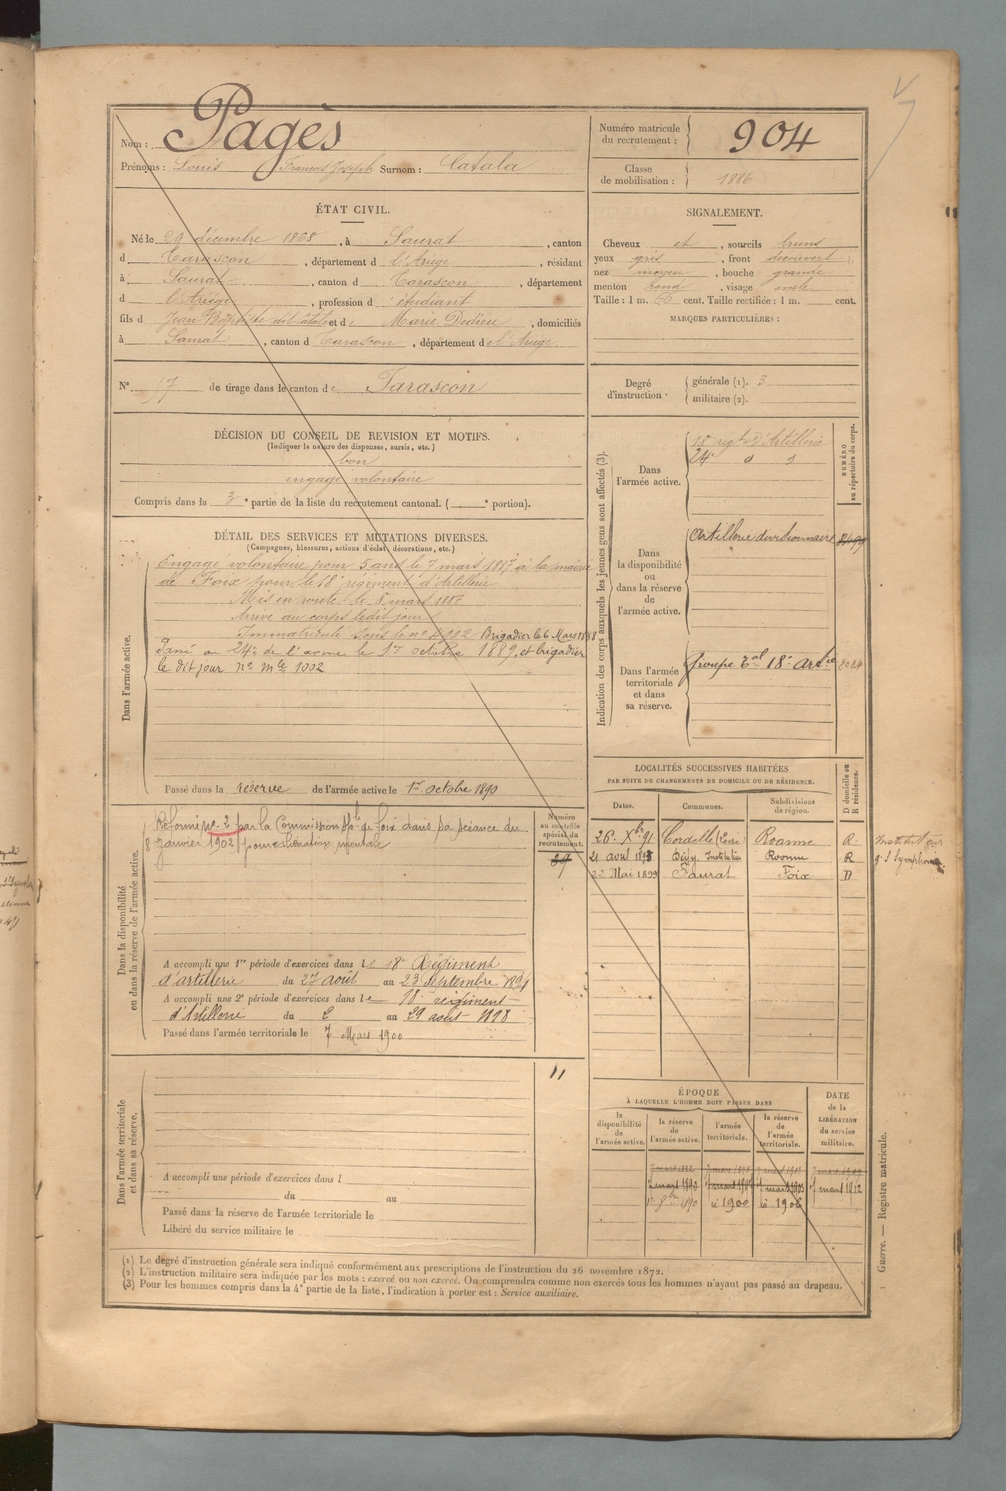 Nom : Pagès
Prénoms : Louis François Joseph Surnom : Catala
Numéro matricule du recrutement : 904
Classe de mobilisation : 1886
ÉTAT CIVIL.
Né le 20 décembre 1868, à Saurat, canton
d Tarascon, département d l'Ariège, résidant
à Saurat, canton d Tarascon, département
d l'Ariège, profession d étudiant
fils d Jean Baptiste dit et de Marie Didieu, domiciliés
à Saurat, canton d Tarascon, département de l'Ariège.
N° 57 de tirage dans le canton de Tarascon
DÉCISION DU CONSEIL DE REVISION ET MOTIFS.
(Indiquer la nature des dispenses, sursis, etc.)
bon
engagé volontaire
Compris dans la 3e partie de la liste du recrutement cantonal. ( e portion).
DÉTAIL DES SERVICES ET MUTATIONS DIVERSES.
(Campagnes, blessures, actions d'éclat, décorations, etc.)
Dans l'armée active.
Engagé volontaire pour 5 ans le 7 mars 1887 à la mairie
de Foix pour le 18e régiment d'Artillerie
Mis en route le 8 mars 1887
Arrivé au corps le dit jour
Immatriculé sous le no 2902 Brigadier le 6 Mars 1888
Passé au 24e de l'arme le 1er octobre 1889, et brigadier
le dit jour no mle 1002
Passé dans la réserve de l'armée active le 1er octobre 1890
Dans la disponibilité ou dans la réserve de l'armée active.
Réformé no 2 par la Commission sple de Foix dans sa séance du
8 janvier 1902 pour aliénation mentale
Numéro au contrôle spécial du recrutement.
A accompli une 1re période d'exercices dans le 18e Régiment
d'artillerie du 27 août au 23 septembre 1894
A accompli une 2e période d'exercices dans le 18e régiment
d'Artillerie du 2 au 29 août 1898
Passé dans l'armée territoriale le 7 Mars 1900
Dans l'armée territoriale et dans sa réserve.
11
A accompli une période d'exercices dans l
du au
Passé dans la réserve de l'armée territoriale le
Libéré du service militaire le
SIGNALEMENT.
Cheveux et, sourcils bruns
yeux gris, front découvert
nez moyen, bouche grande
menton rond, visage ovale
Taille : 1 m. 60 cent. Taille rectifiée : 1 m. cent.
MARQUES PARTICULIÈRES :
Degré d'instruction.
générale (1). 3
militaire (2).
Indication des corps auxquels les jeunes gens sont affectés (3).
NUMÉRO au répertoire du corps.
Dans l'armée active.
18e régt d'Artillerie
24e d d
Dans la disponibilité ou dans la réserve de l'armée active.
Artillerie divisionnaire
Dans l'armée territoriale et dans sa réserve.
Groupe Tal 18e Artie
LOCALITÉS SUCCESSIVES HABITÉES
PAR SUITE DE CHANGEMENTS DE DOMICILE OU DE RÉSIDENCE.
Dates. Communes. Subdivisions de région. D domicile ou R résidence.
26. Xbre 91 Cordelle (Loire) Roanne R
21 avril 1893 Roanne R
22 Mai 1899 Saurat Foix D
ÉPOQUE
À LAQUELLE L'HOMME DOIT PASSER DANS
la disponibilité de l'armée active. la réserve de l'armée active. l'armée territoriale. la réserve de l'armée territoriale.
DATE de la LIBÉRATION du service militaire.
1900 1906
Guerre. — Registre matricule.
(1) Le degré d'instruction générale sera indiqué conformément aux prescriptions de l'instruction du 26 novembre 1872.
(2) L'instruction militaire sera indiquée par les mots : exercé ou non exercé. On comprendra comme non exercés tous les hommes n'ayant pas passé au drapeau.
(3) Pour les hommes compris dans la 4e partie de la liste, l'indication à porter est : Service auxiliaire.